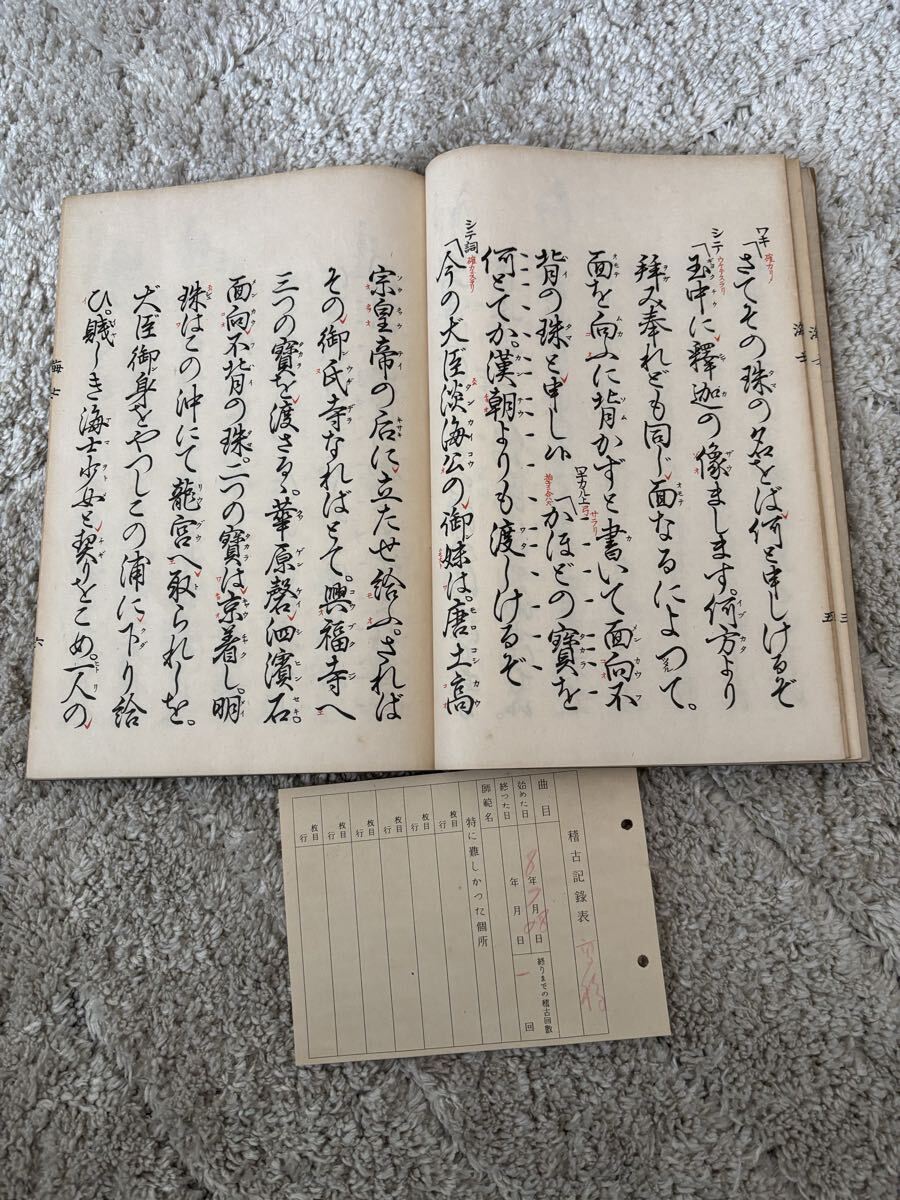 ワキ「さてその珠の名をば何と申しけるぞ
シテ「玉中に釋迦の像まします。何方より
拜み奉れども同じ面なるによつて。
面を向ふに背かずと書いて面向不
背の珠と申し候「かほどの寶を
何とてか。漢朝よりも渡しけるぞ
シテ詞「今の大臣淡海公の御妹は。唐土高
宗皇帝の后に立たせ給ふ。されば
その御氏寺なればとて。興福寺へ
三つの寶を渡さるゝ華原磬泗濱石
面向不背の珠。二つの寶は京着し。明
珠はこの沖にて龍宮へ取られしを。
大臣御身をやつしこの浦に下り給
ひ。賤しき海士少女と契りをこめ。一人の
海士
五
六
稽古記錄表
曲目
始めた日 8年7月08日
終つた日 年月日
終りまでの稽古回數 一回
師範名
特に難しかつた個所
枚目 行
枚目 行
枚目 行
枚目 行
枚目 行
枚目 行